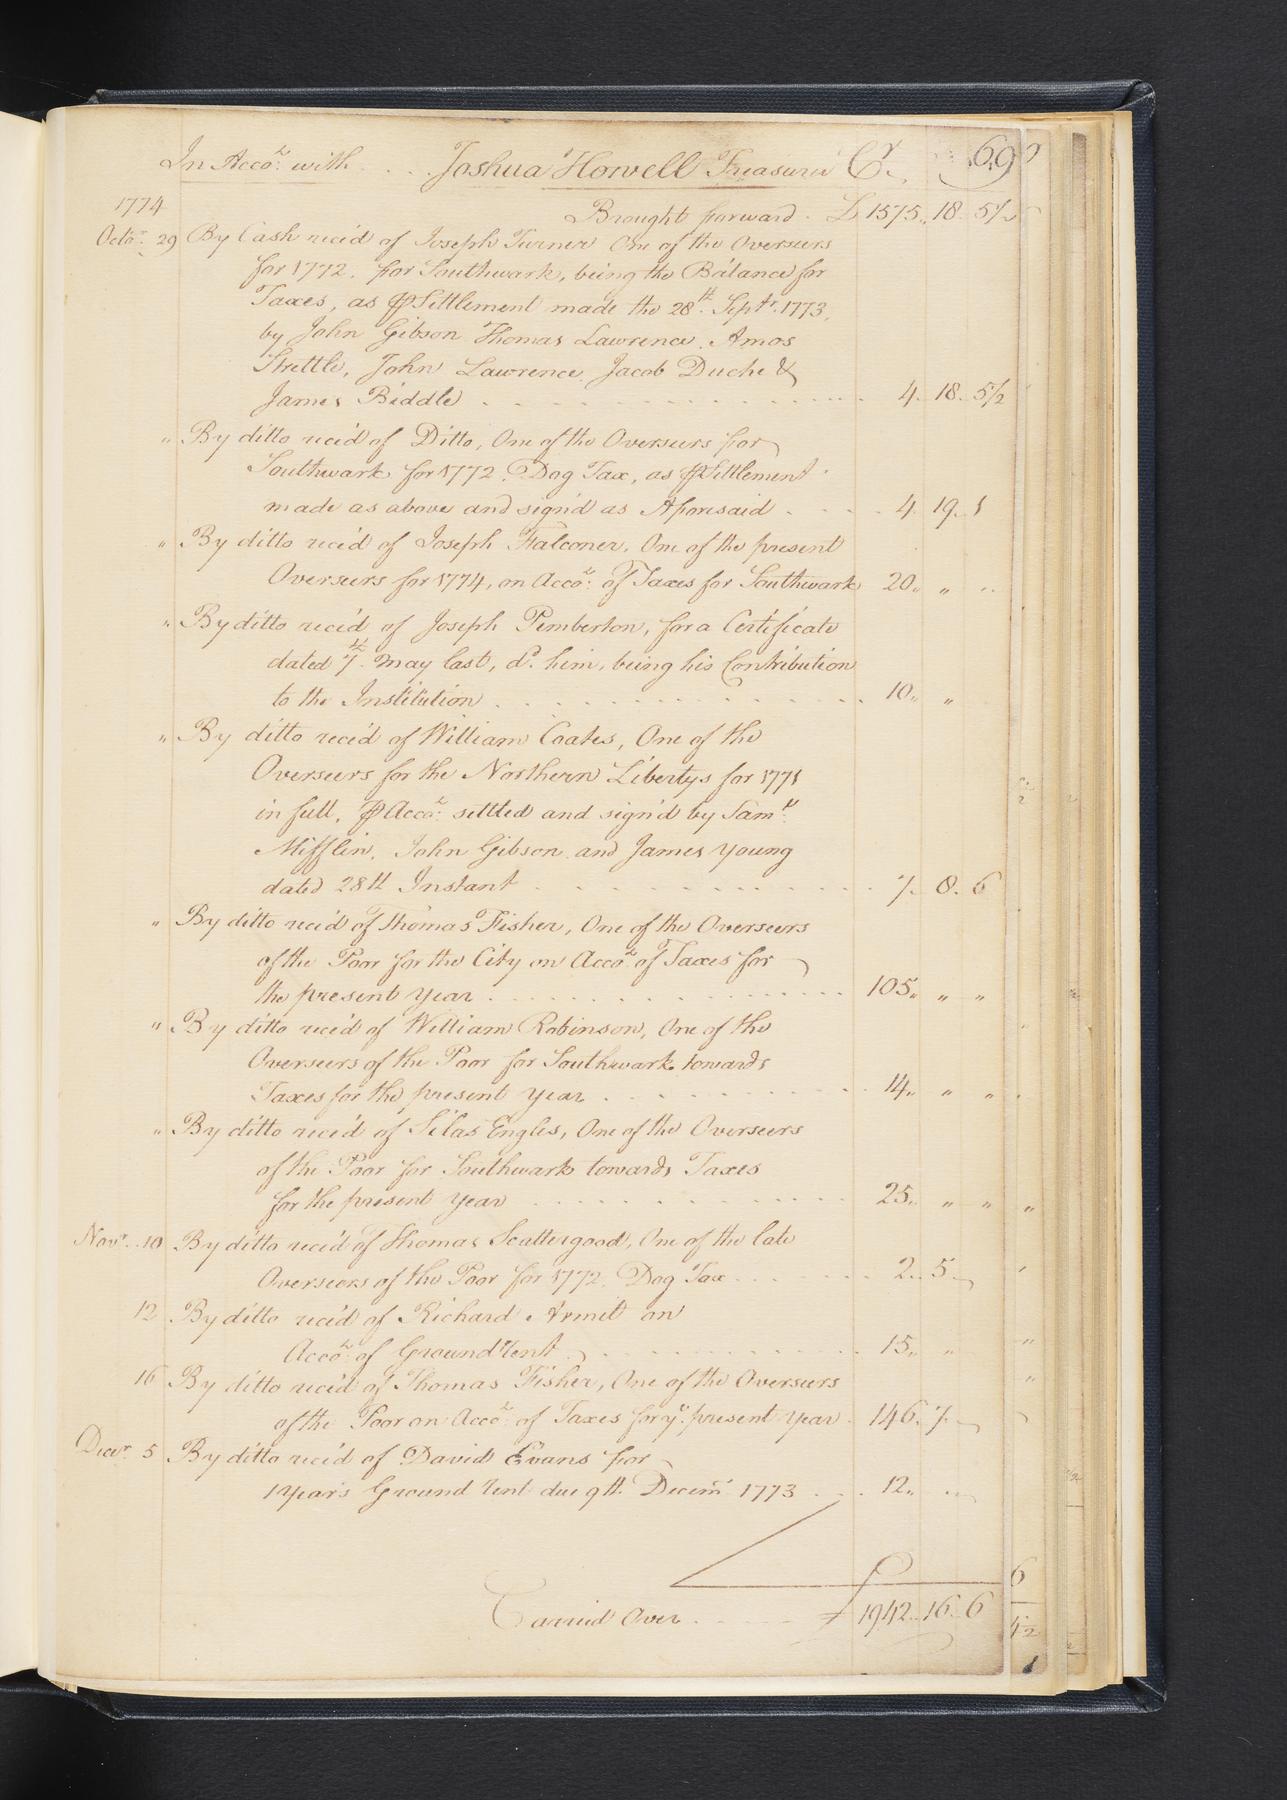 In Acco.t with . . . Joshua Howell Treasurer Cr. 69
1774 Brought forward . £ 1575 " 18 . 5½
Octo.r 29 By Cash rec'd of Joseph Turner One of the Overseers
for 1772. for Southwark, being the Balance for
Taxes, as ⅌ Settlement made the 28th. Sept.r 1773,
by John Gibson Thomas Lawrence. Amos
Strettle, John Lawrence Jacob Duche &
James Biddle 4 . 18 . 5½
" By ditto rec'd of Ditto, One of the Overseers for
Southwark for 1772. Dog Tax, as ⅌ Settlement
made as above and sign'd as Aforesaid 4 . 19 . 1
" By ditto rec'd of Joseph Falconer, One of the present
Overseers for 1774, on Acco.t of Taxes for Southwark 20 " " "
" By ditto rec'd of Joseph Pemberton, for a Certificate
dated 7th. May last, d.o him, being his Contribution
to the Institution 10 " "
" By ditto rec'd of William Coates, One of the
Overseers for the Northern Libertys for 1771
in full, ⅌ Acco.t settled and sign'd by Sam.ll
Mifflin, John Gibson and James Young
dated 28th Instant 7 . 8 . 6
" By ditto rec'd of Thomas Fisher, One of the Overseers
of the Poor for the City on Acco.t of Taxes for
the present Year 105 " " "
" By ditto rec'd of William Robinson, One of the
Overseers of the Poor for Southwark towards
Taxes for the present Year 14 " " "
" By ditto rec'd of Silas Engles, One of the Overseers
of the Poor for Southwark towards Taxes
for the present Year 25 " " "
Nov.r 10 By ditto rec'd of Thomas Scattergood, One of the late
Overseers of the Poor for 1772. Dog Tax 2 " 5 "
12 By ditto rec'd of Richard Armit on
Acco.t of Ground Rent 15 " "
16 By ditto rec'd of Thomas Fisher, One of the Overseers
of the Poor on Acco.t of Taxes for y.e present Year 146 " 7 "
Decr. 5 By ditto rec'd of David Evans for
1 Year's Ground Rent due 9th. Decem.r 1773 12 " "
Carried Over £ 1942 " 16 " 6